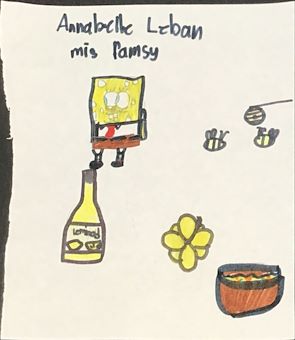 Annabelle Leban
mis Pamsy
Lemonad